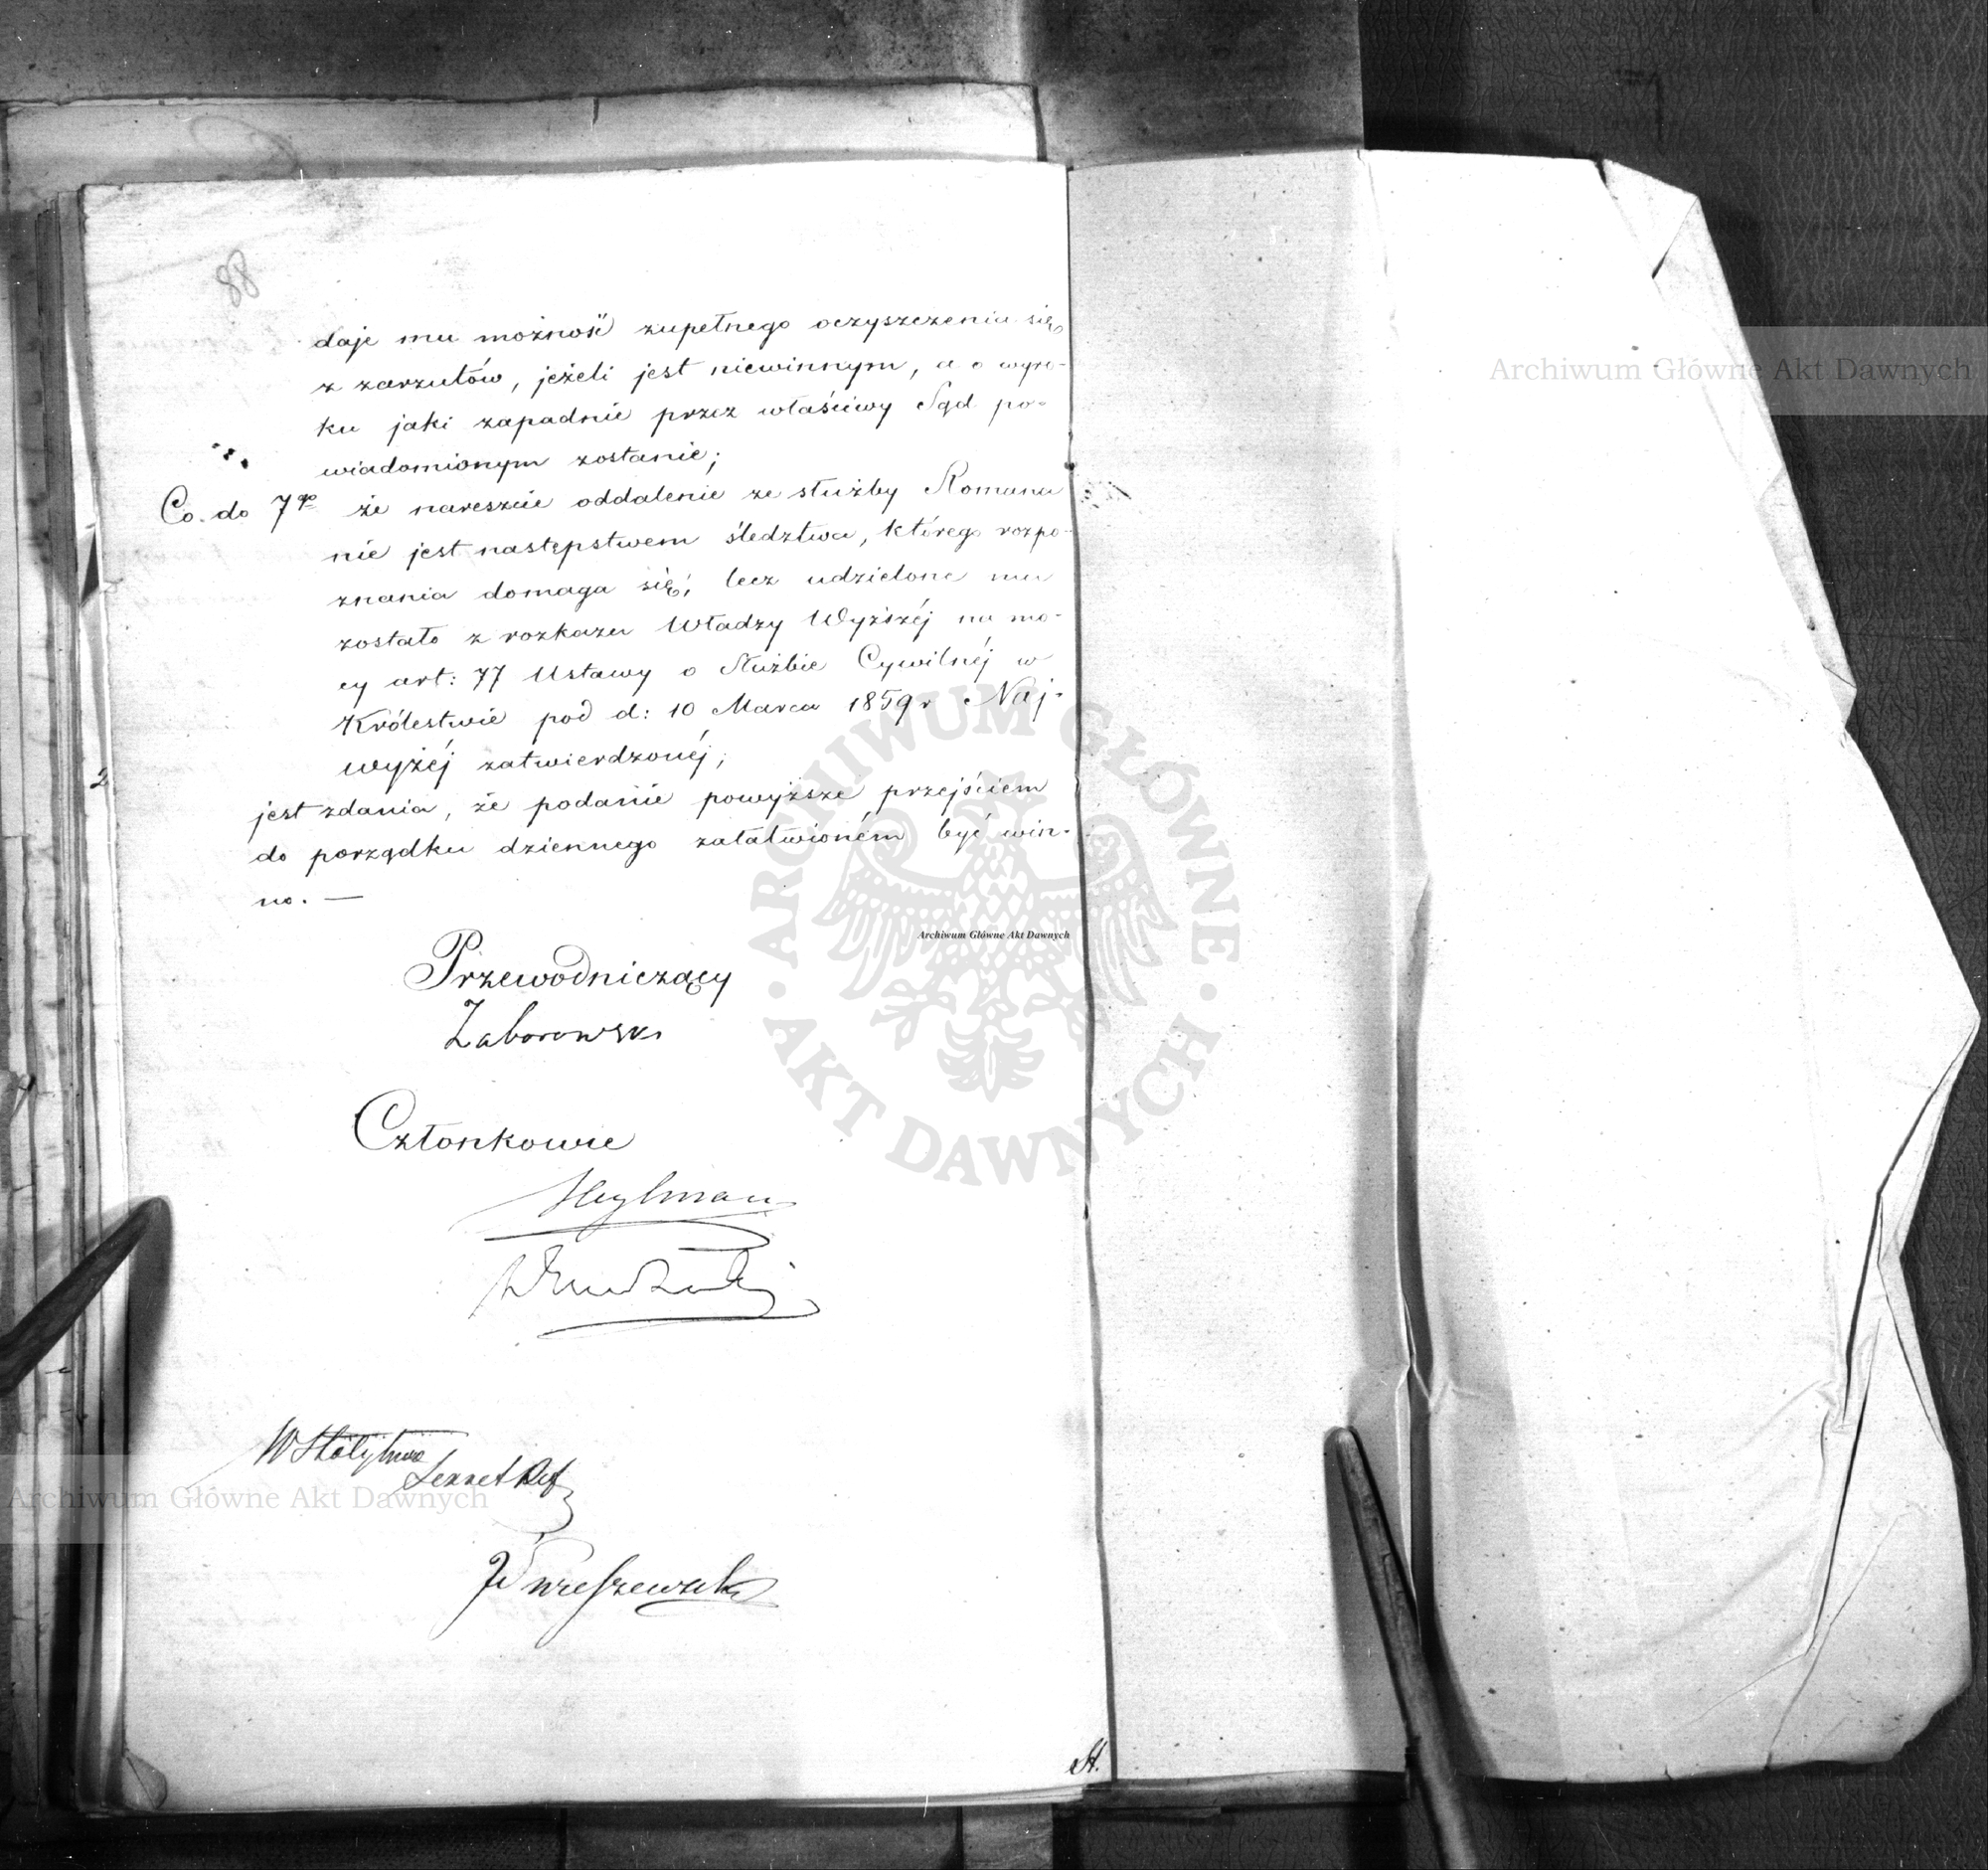 88
daje mu możność zupełnego oczyszczenia się
z zarzutów, jeżeli jest niewinnym, a o wyro-
ku jaki zapadnie przez właściwy Sąd po-
wiadomionym zostanie;
Co do 7go że nareszcie oddalenie ze służby Romana
nie jest następstwem śledztwa, którego rozpo-
znania domaga się; lecz udzielone mu
zostało z rozkazu Władzy Wyższéj na mo-
cy art: 77 Ustawy o Służbie Cywilnéj w
Królestwie pod d: 10 Marca 1859 r Naj-
wyżéj zatwierdzonéj;
jest zdania, że podanie powyższe przejściem
do porządku dziennego załatwioném być win-
no. —
Przewodniczący
Zaborowski
Członkowie
Heylman
Archiwum Główne Akt Dawnych
Archiwum Główne Akt Dawnych
Archiwum Główne Akt Dawnych
ARCHIWUM GŁÓWNE
AKT DAWNYCH